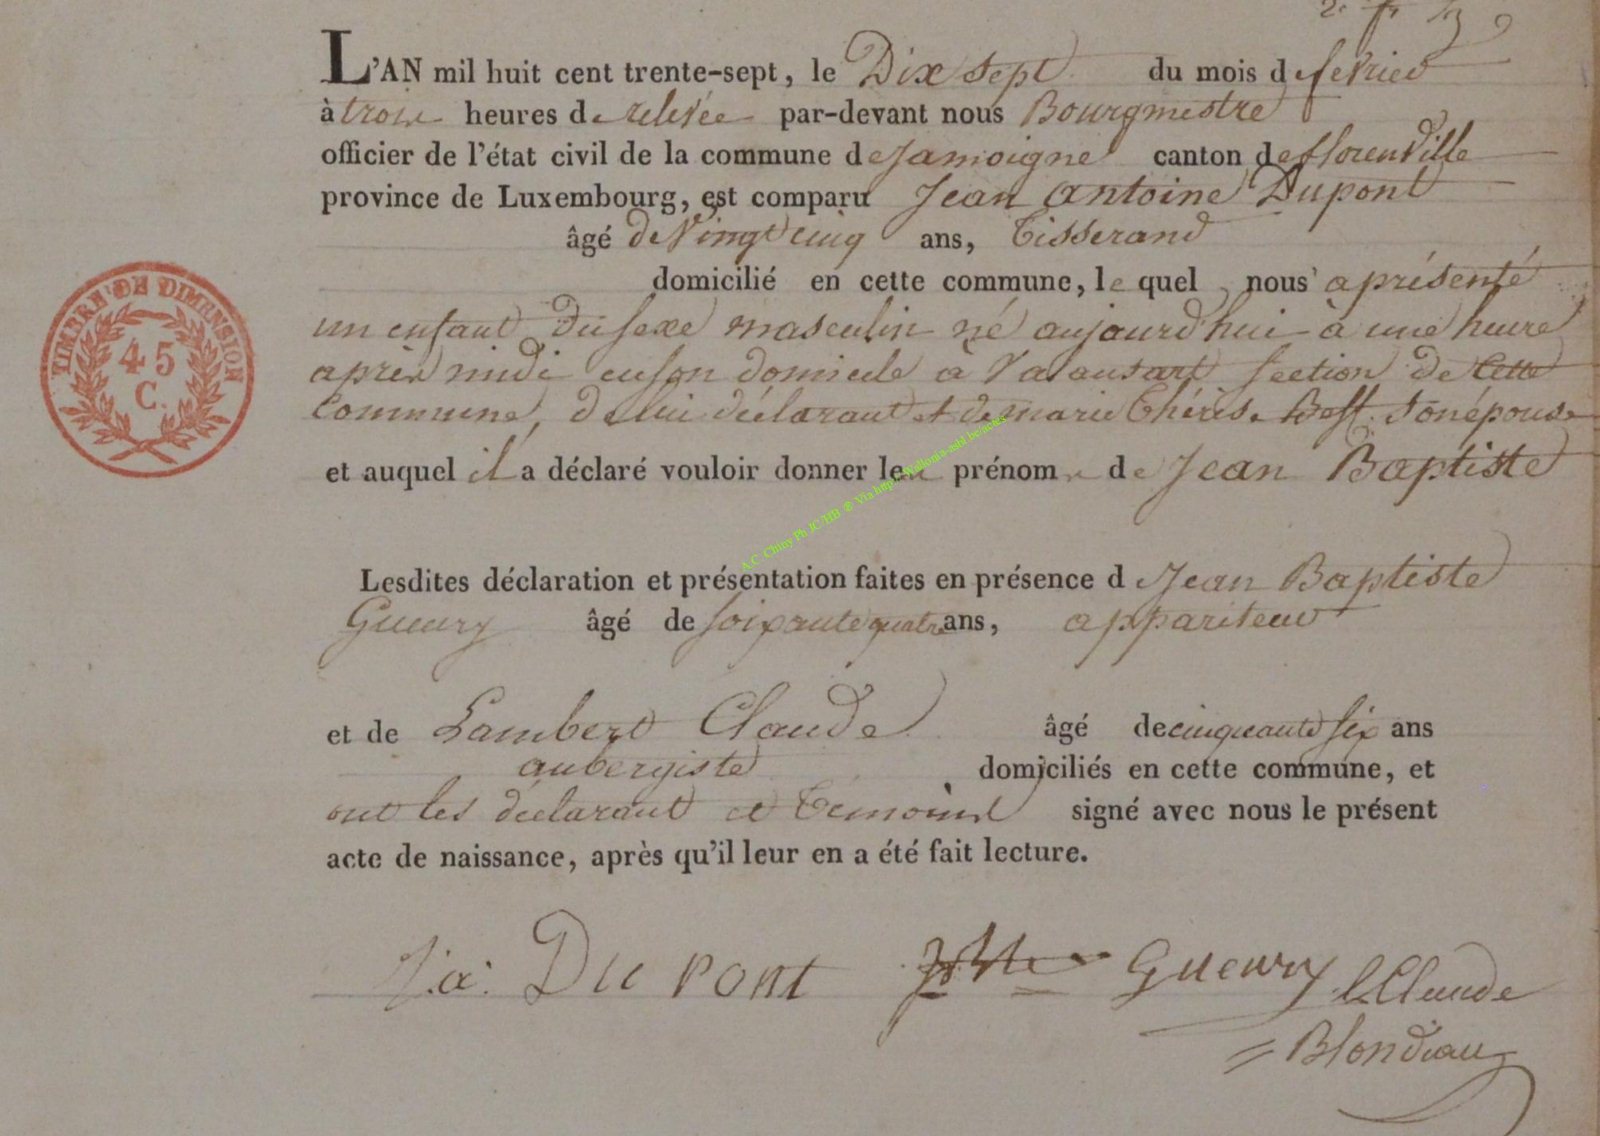 L'AN mil huit cent trente-sept, le Dix sept du mois de fevrier
à trois heures de relevée par-devant nous Bourgmestre
officier de l'état civil de la commune de Jamoigne canton de florenville
province de Luxembourg, est comparu Jean antoine Dupont
âgé de Vingt cinq ans, Tisserand
domicilié en cette commune, le quel nous a présenté
un enfant du sexe masculin né aujourd'hui à une heure
après midi en son domicile à Valansart section de Cette
Commune, de lui déclarant et de marie Thérèse son épouse
et auquel il a déclaré vouloir donner les prénoms de Jean Baptiste
TIMBRE DE DIMENSION
45
C.
A.C. Chiny Ph JC/HB ® Via
Lesdites déclaration et présentation faites en présence de Jean Baptiste
Gueury âgé de soixante quatre ans, appariteur
et de Lambert Claude âgé de cinquante six ans
aubergiste domiciliés en cette commune, et
ont les déclarant et Témoins signé avec nous le présent
acte de naissance, après qu'il leur en a été fait lecture.
J. a. Dupont Gueury L. Claude
Blondiau